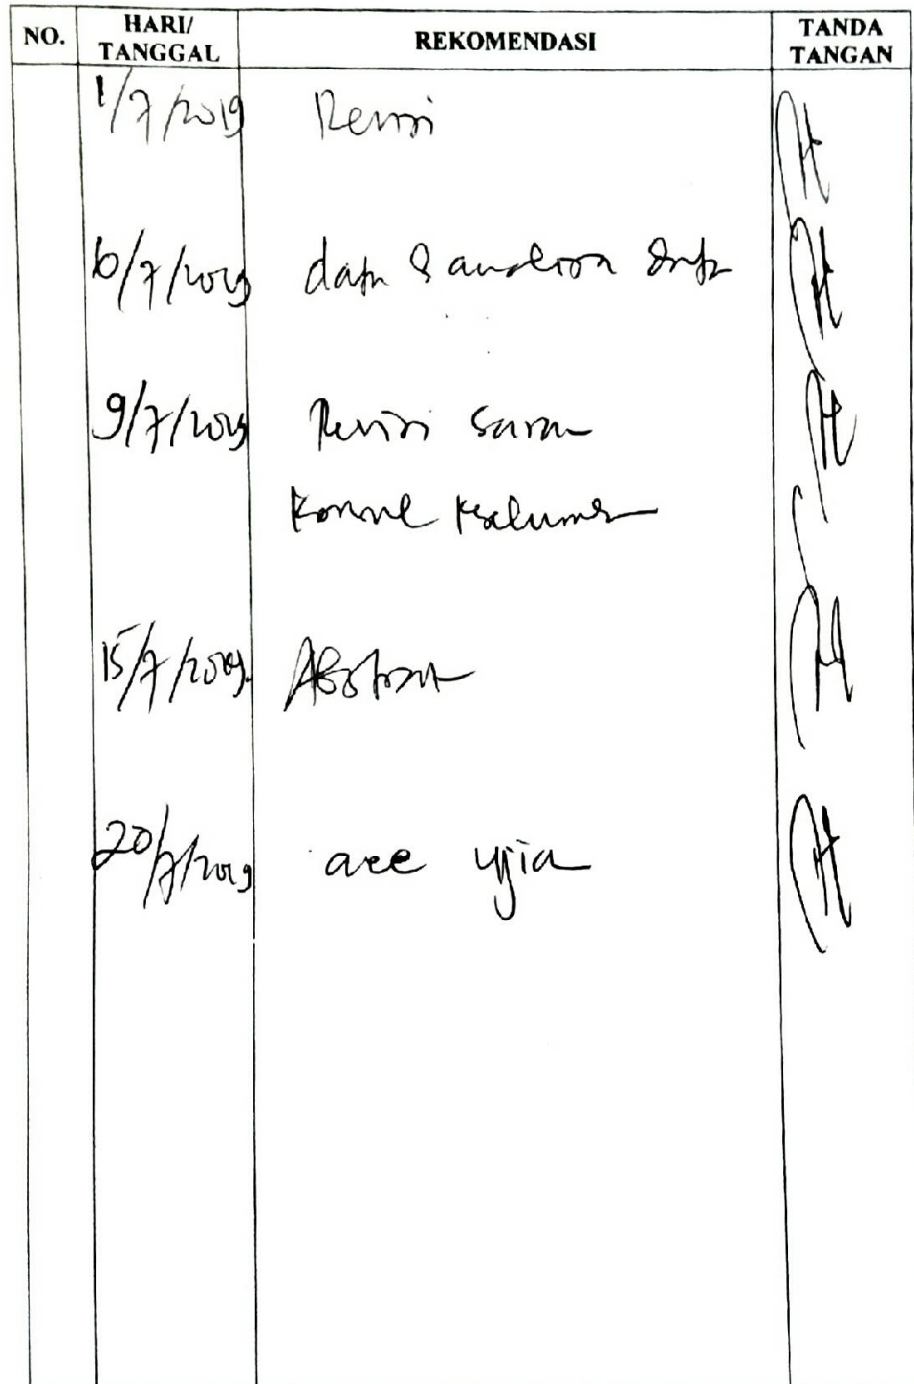 NO. HARI/ TANGGAL REKOMENDASI TANDA TANGAN
1/7/2019 Revisi
6/7/2019 data & analisa data
9/7/2019 Revisi Saran
Konsul keseluruhan
15/7/2019 Abstrak
20/7/2019 acc ujian